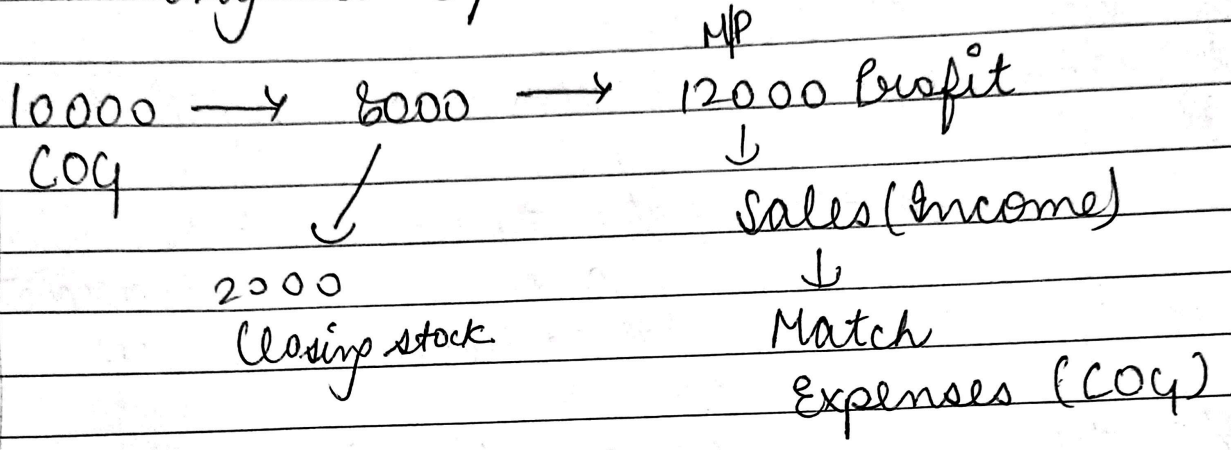 M/P
10000 → 8000 → 12000 Profit
COG ↓
↓ Sales (Income)
2000 ↓
Closing stock Match
Expenses (COG)